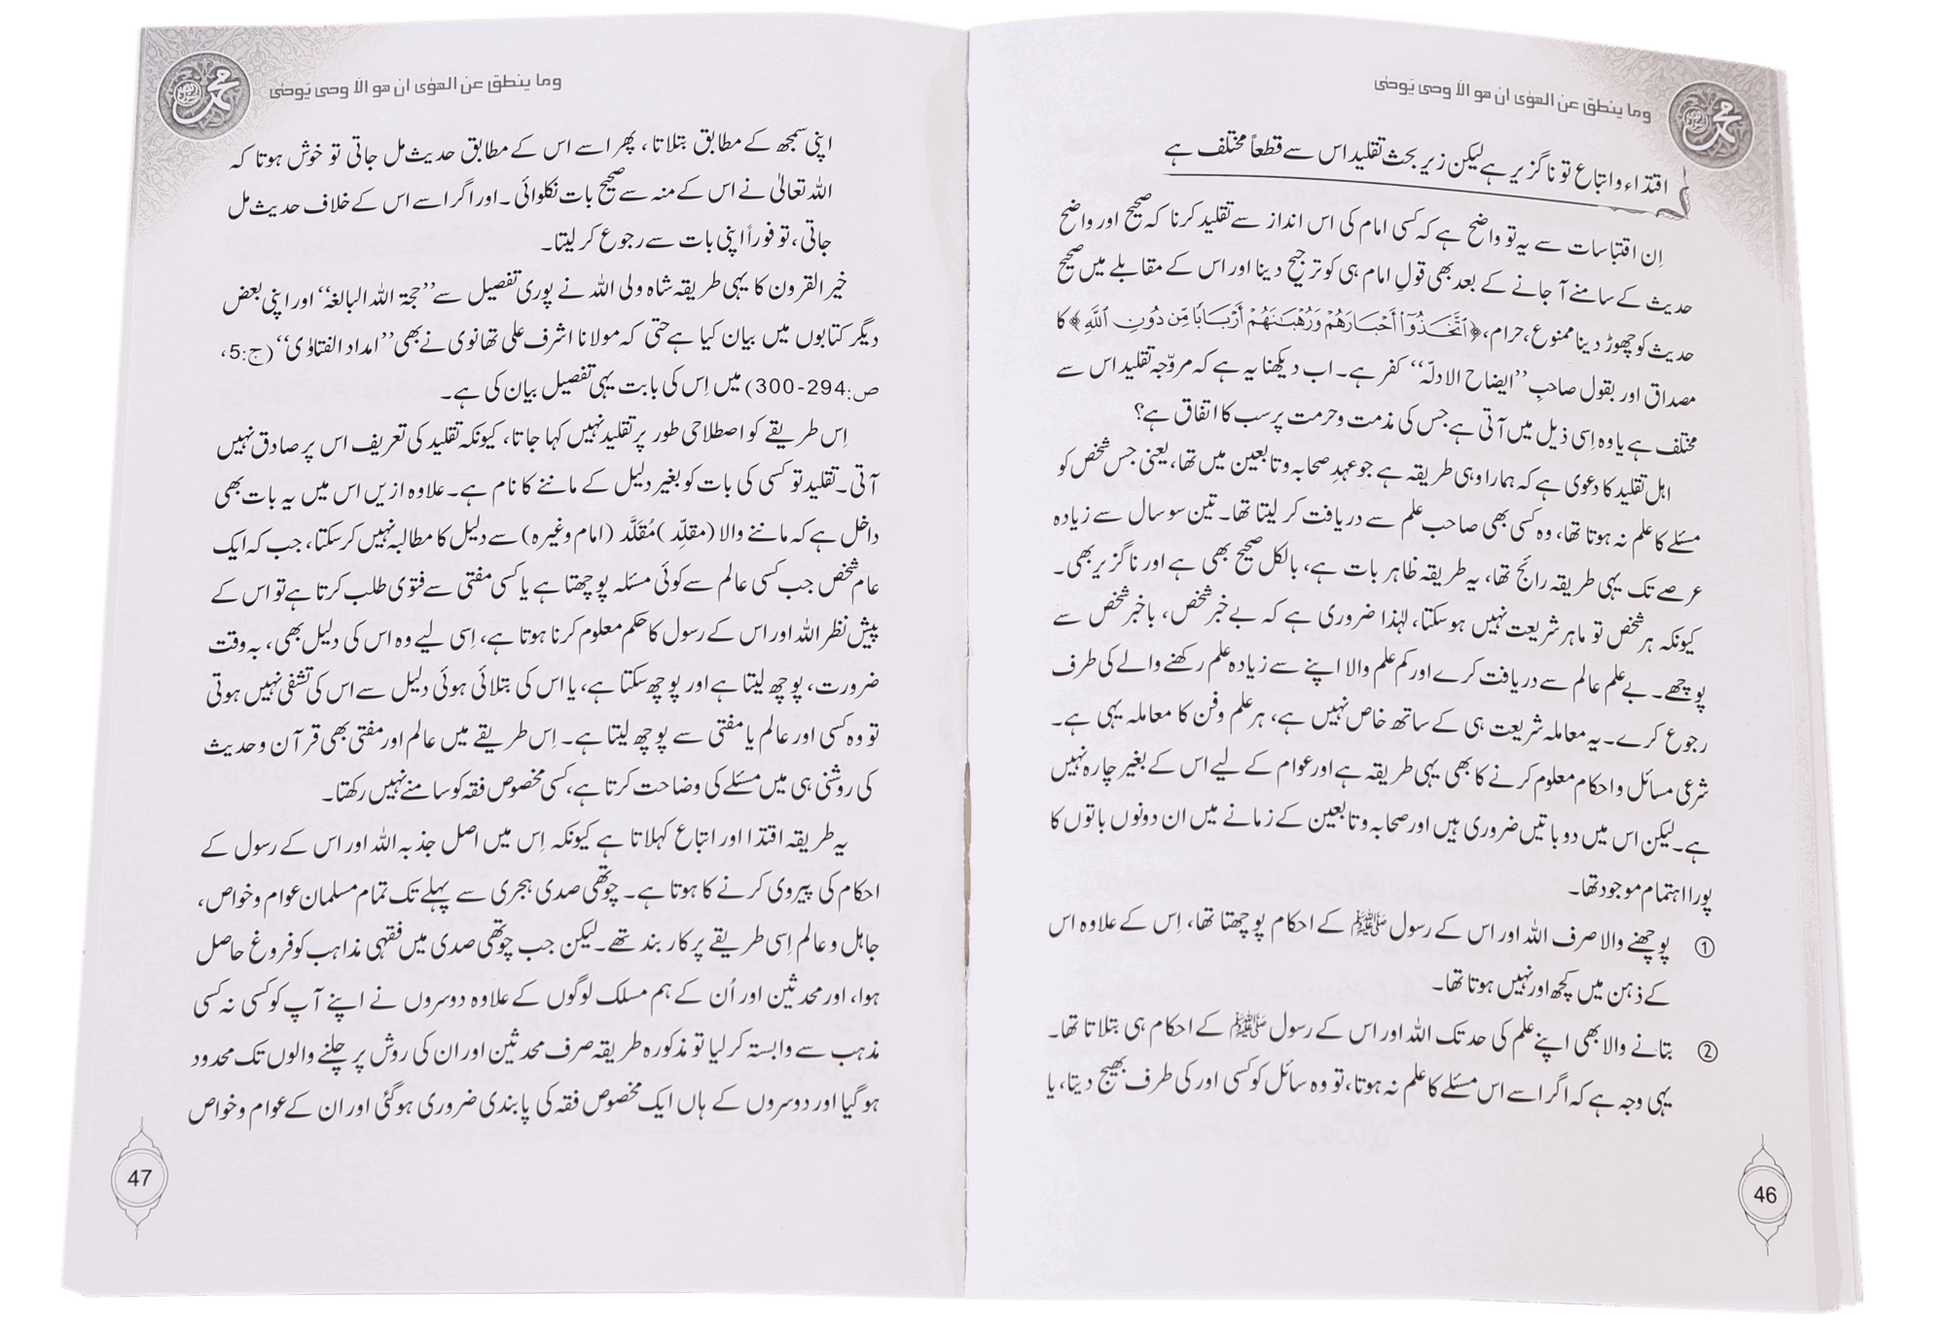 وما ينطق عن الهوٰى ان هو الّا وحى يّوحٰى
محمد
اقتداء و اتباع تو ناگزیر ہے لیکن زیر بحث تقلید اس سے قطعاً مختلف ہے
اِن اقتباسات سے یہ تو واضح ہے کہ کسی امام کی اس انداز سے تقلید کرنا کہ صحیح اور واضح
حدیث کے سامنے آ جانے کے بعد بھی قولِ امام ہی کو ترجیح دینا اور اس کے مقابلے میں صحیح
حدیث کو چھوڑ دینا ممنوع، حرام، ﴿ٱتَّخَذُوٓا۟ أَحْبَارَهُمْ وَرُهْبَـٰنَهُمْ أَرْبَابًا مِّن دُونِ ٱللَّهِ﴾ کا
مصداق اور بقول صاحبِ ’’ایضاح الادلّہ‘‘ کفر ہے۔ اب دیکھنا یہ ہے کہ مروّجہ تقلید اس سے
مختلف ہے یا وہ اِسی ذیل میں آتی ہے جس کی مذمت و حرمت پر سب کا اتفاق ہے؟
اہل تقلید کا دعوی ہے کہ ہمارا وہی طریقہ ہے جو عہدِ صحابہ و تابعین میں تھا، یعنی جس شخص کو
مسئلے کا علم نہ ہوتا تھا، وہ کسی بھی صاحب علم سے دریافت کر لیتا تھا۔ تین سو سال سے زیادہ
عرصے تک یہی طریقہ رائج تھا، یہ طریقہ ظاہر بات ہے، بالکل صحیح بھی ہے اور ناگزیر بھی۔
کیونکہ ہر شخص تو ماہر شریعت نہیں ہو سکتا، لہٰذا ضروری ہے کہ بے خبر شخص، باخبر شخص سے
پوچھے۔ بے علم عالم سے دریافت کرے اور کم علم والا اپنے سے زیادہ علم رکھنے والے کی طرف
رجوع کرے۔ یہ معاملہ شریعت ہی کے ساتھ خاص نہیں ہے، ہر علم و فن کا معاملہ یہی ہے۔
شرعی مسائل و احکام معلوم کرنے کا بھی یہی طریقہ ہے اور عوام کے لیے اس کے بغیر چارہ نہیں
ہے۔ لیکن اس میں دو باتیں ضروری ہیں اور صحابہ و تابعین کے زمانے میں ان دونوں باتوں کا
پورا اہتمام موجود تھا۔
① پوچھنے والا صرف اللہ اور اس کے رسول ﷺ کے احکام پوچھتا تھا، اِس کے علاوہ اس
کے ذہن میں کچھ اور نہیں ہوتا تھا۔
② بتانے والا بھی اپنے علم کی حد تک اللہ اور اس کے رسول ﷺ کے احکام ہی بتلاتا تھا۔
یہی وجہ ہے کہ اگر اسے اس مسئلے کا علم نہ ہوتا، تو وہ سائل کو کسی اور کی طرف بھیج دیتا، یا
46
وما ينطق عن الهوٰى ان هو الّا وحى يّوحٰى
محمد
اپنی سمجھ کے مطابق بتلاتا، پھر اسے اس کے مطابق حدیث مل جاتی تو خوش ہوتا کہ
اللہ تعالیٰ نے اس کے منہ سے صحیح بات نکلوائی۔ اور اگر اسے اس کے خلاف حدیث مل
جاتی، تو فوراً اپنی بات سے رجوع کر لیتا۔
خیر القرون کا یہی طریقہ شاہ ولی اللہ نے پوری تفصیل سے ’’حجۃ اللہ البالغہ‘‘ اور اپنی بعض
دیگر کتابوں میں بیان کیا ہے حتی کہ مولانا اشرف علی تھانوی نے بھی ’’امداد الفتاوٰی‘‘ (ج:5،
ص:294-300) میں اِس کی بابت یہی تفصیل بیان کی ہے۔
اِس طریقے کو اصطلاحی طور پر تقلید نہیں کہا جاتا، کیونکہ تقلید کی تعریف اس پر صادق نہیں
آتی۔ تقلید تو کسی کی بات کو بغیر دلیل کے ماننے کا نام ہے۔ علاوہ ازیں اس میں یہ بات بھی
داخل ہے کہ ماننے والا (مقلِّد) مُقلَّد (امام وغیرہ) سے دلیل کا مطالبہ نہیں کر سکتا، جب کہ ایک
عام شخص جب کسی عالم سے کوئی مسئلہ پوچھتا ہے یا کسی مفتی سے فتوی طلب کرتا ہے تو اس کے
پیش نظر اللہ اور اس کے رسول کا حکم معلوم کرنا ہوتا ہے، اِسی لیے وہ اس کی دلیل بھی، بہ وقت
ضرورت، پوچھ لیتا ہے اور پوچھ سکتا ہے، یا اس کی بتلائی ہوئی دلیل سے اس کی تشفی نہیں ہوتی
تو وہ کسی اور عالم یا مفتی سے پوچھ لیتا ہے۔ اِس طریقے میں عالم اور مفتی بھی قرآن و حدیث
کی روشنی ہی میں مسئلے کی وضاحت کرتا ہے، کسی مخصوص فقہ کو سامنے نہیں رکھتا۔
یہ طریقہ اقتدا اور اتباع کہلاتا ہے کیونکہ اِس میں اصل جذبہ اللہ اور اس کے رسول کے
احکام کی پیروی کرنے کا ہوتا ہے۔ چوتھی صدی ہجری سے پہلے تک تمام مسلمان عوام و خواص،
جاہل و عالم اِسی طریقے پر کاربند تھے۔ لیکن جب چوتھی صدی میں فقہی مذاہب کو فروغ حاصل
ہوا، اور محدثین اور اُن کے ہم مسلک لوگوں کے علاوہ دوسروں نے اپنے آپ کو کسی نہ کسی
مذہب سے وابستہ کر لیا تو مذکورہ طریقہ صرف محدثین اور ان کی روش پر چلنے والوں تک محدود
ہو گیا اور دوسروں کے ہاں ایک مخصوص فقہ کی پابندی ضروری ہو گئی اور ان کے عوام و خواص
47